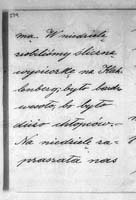 ma. W niedzielę
zrobiliśmy śliczną
wycieczkę na Kah-
lenberg; było bardzo
wesoło, bo było
dużo chłopców.
Na niedzielę za-
praszała nas